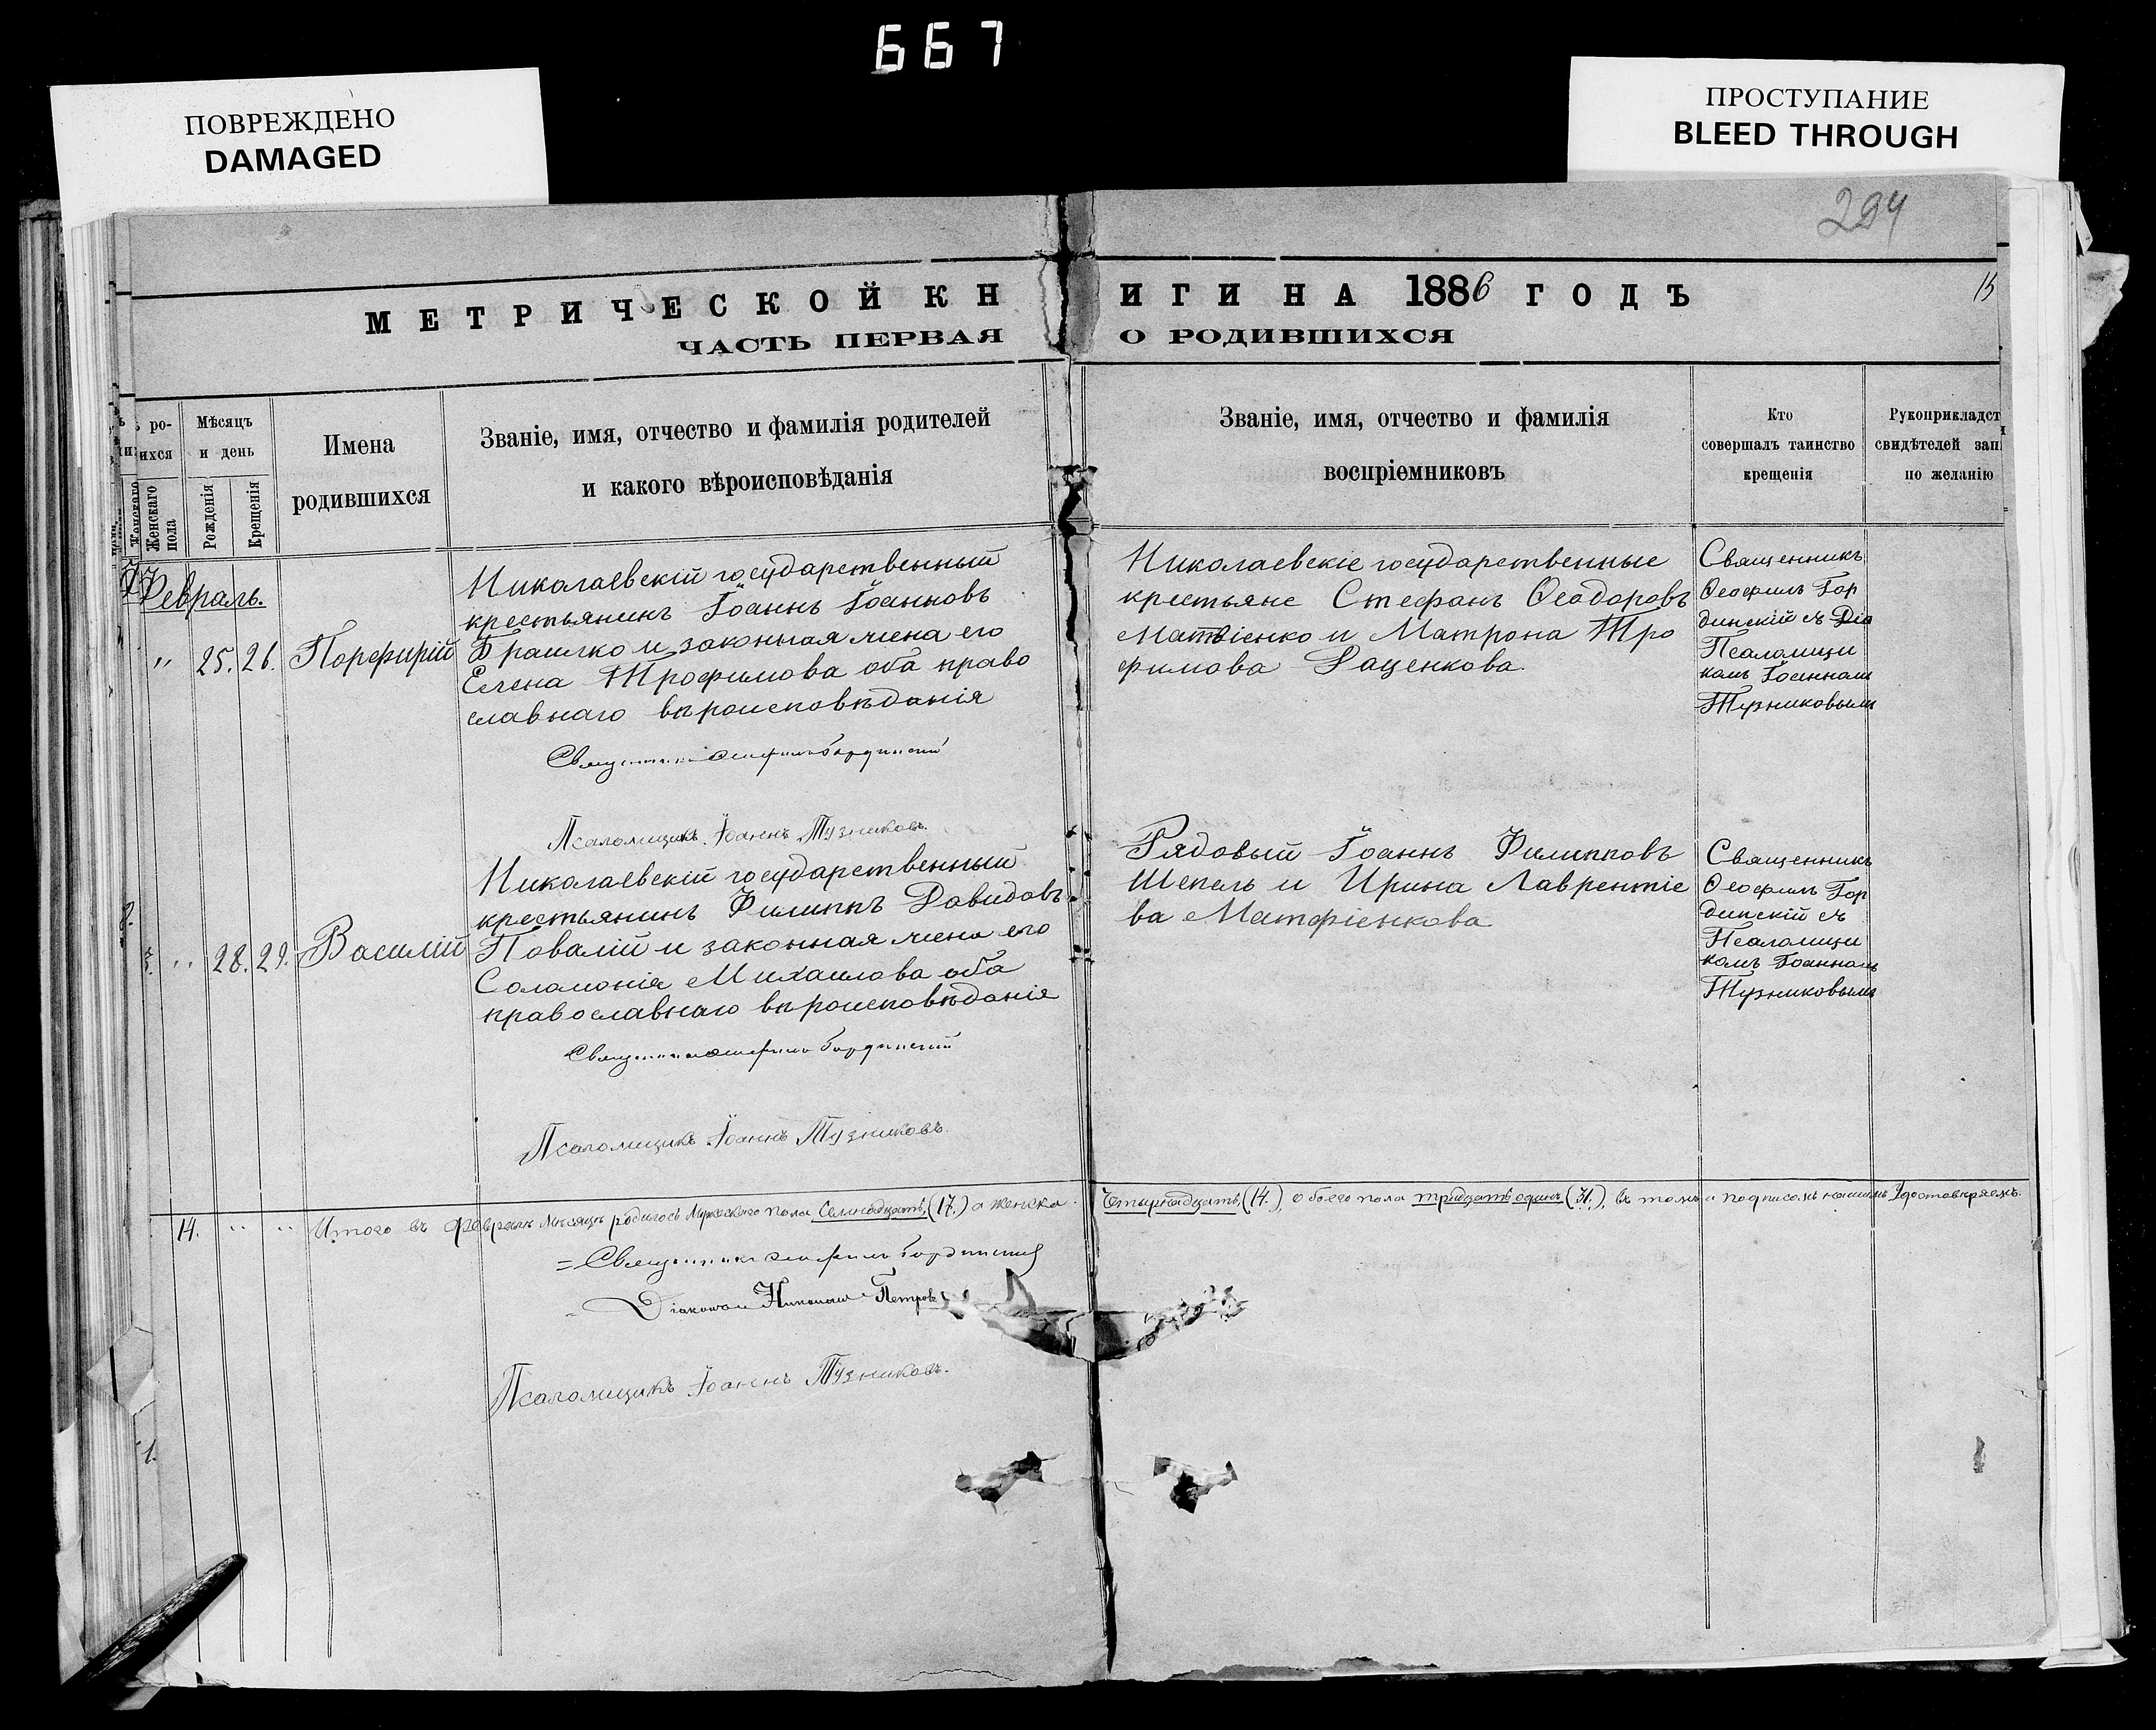 667
ПОВРЕЖДЕНО
DAMAGED
ПРОСТУПАНИЕ
BLEED THROUGH
294
МЕТРИЧЕСКОЙ КНИГИ НА 1886 ГОДЪ
15
ЧАСТЬ ПЕРВАЯ О РОДИВШИХСЯ
ро-
ихся
Женскаго
пола
Мѣсяцъ
и день
Рожденія
Крещенія
Имена
родившихся
Званіе, имя, отчество и фамилія родителей
и какого вѣроисповѣданія
Званіе, имя, отчество и фамилія
воспріемниковъ
Кто
совершалъ таинство
крещенія
Рукоприкладст
свидѣтелей зап
по желанію
Февраль.
" 25. 26. Порфирій
Николаевскій государственный
крестьянинъ Іоаннъ Іоанновъ
Брашко и законная жена его
Елена Трофимова оба право
славнаго вѣроисповѣданія
Священникъ Ѳеофилъ Гординскій
Псаломщикъ Іоаннъ Тузниковъ.
Николаевскіе государственные
крестьяне Стефанъ Ѳеодоровъ
Матвіенко и Матрона Тро
фимова Даценкова.
Священникъ
Ѳеофилъ Гор
динскій съ Діа
Псаломщи
комъ Іоанномъ
Тузниковымъ
3. " 28. 29. Василій
Николаевскій государственный
крестьянинъ Филиппъ Давидовъ
Повалій и законная жена его
Соломонія Михаилова оба
православнаго вѣроисповѣданія
Священникъ Ѳеофилъ Гординскій
Псаломщикъ Іоаннъ Тузниковъ.
Рядовый Іоаннъ Филипповъ
Шепель и Ирина Лаврентіе
ва Матфіенкова
Священникъ
Ѳеофилъ Гор
динскій съ
Псаломщи
комъ Іоанномъ
Тузниковымъ
14. " " Итого въ Февралѣ мѣсяцѣ родилось Мужескаго пола Семнадцать, (17.) а женска
Четырнадцать, (14.), обоего пола тридцать одинъ (31.), въ томъ и подписомъ нашимъ Удостовѣряемъ.
= Священникъ Ѳеофилъ Гординскій
Діаконъ Николай Петровъ
Псаломщикъ Іоаннъ Тузниковъ.
1.